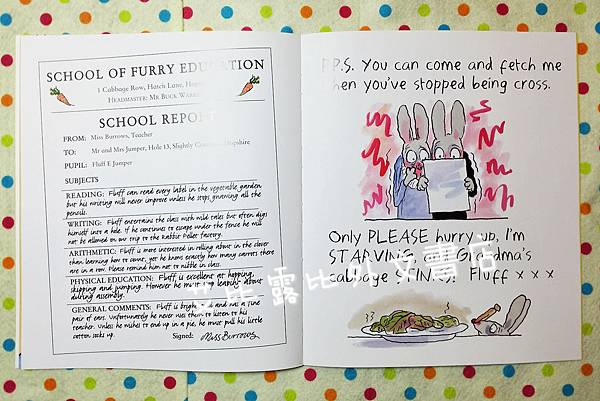 SCHOOL OF FURRY EDUCATION
1 Cabbage Row, Hutch Lane,
HEADMASTER: MR BUCK
SCHOOL REPORT
FROM: Miss Burrows, Teacher
TO: Mr and Mrs Jumper, Hole 13, Slightly
PUPIL: Fluff E Jumper
SUBJECTS
READING: Fluff can read every label in the vegetable garden
but his writing will never improve unless he stops gnawing all the
pencils.
WRITING: Fluff entertains the class with wild tales but often digs
himself into a hole. If he continues to escape under the fence he will
not be allowed on our trip to the Rabbit Pellet factory.
ARITHMETIC: Fluff is more interested in rolling about in the clover
than learning how to count, yet he knows exactly how many carrots there
are in a row. Please remind him not to nibble in class.
PHYSICAL EDUCATION: Fluff is excellent at hopping,
skipping and jumping. However he must stop leaping about
during assembly.
GENERAL COMMENTS: Fluff is bright and has a fine
pair of ears. Unfortunately he never uses them to listen to his
teacher. Unless he wishes to end up in a pie, he must pull his little
cotton socks up.
Signed: Miss Burrows
P.P.S. You can come and fetch me
when you've stopped being cross.
Only PLEASE hurry up, I'm
STARVING and Grandma's
cabbage STINKS! Fluff x x x
露比外文書店